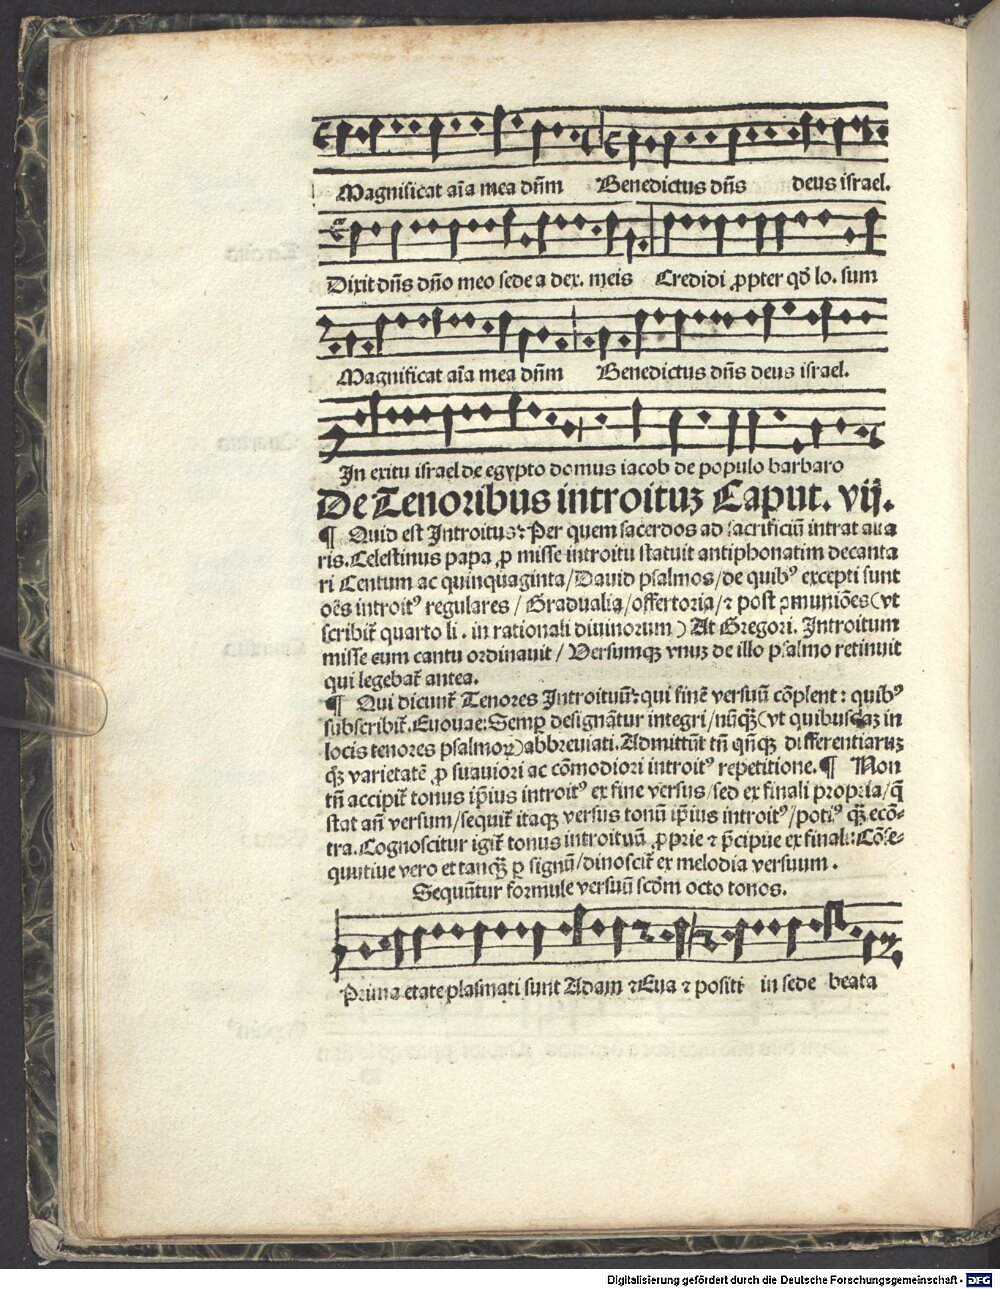 Magnificat aĩa mea dñm Benedictus dñs deus israel.
Dixit dñs dño meo sede a dex. meis Credidi ꝓpter qð lo. sum
Magnificat aĩa mea dñm Benedictus dñs deus israel.
In exitu israel de egypto domus iacob de populo barbaro
De Tenoribus introituꝫ Caput. vij.
¶ Quid est Introitus: Per quem sacerdos ad sacrificiũ intrat alta
ris. Celestinus papa, ꝓ misse introitu statuit antiphonatim decanta
ri Centum ac quinquaginta/Dauid psalmos/de quibꝰ excepti sunt
oẽs introitꝰ regulares / Gradualia/offertoria/⁊ post ꝯmuniões (vt
scribit̃ quarto li. in rationali diuinorum) At Gregori. Introitum
misse cum cantu ordinauit / Versumqꝫ vnuꝫ de illo psalmo retinuit
qui legebat̃ antea.
¶ Qui dicunt̃ Tenores Introituũ: qui finẽ versuũ cõplent: quibꝰ
subscribit̃. Euouae: Semꝑ designãtur integri/nũqꝫ̃ (vt quibusdaꝫ in
locis tenores psalmoꝝ) abbreuiati. Admittũt tñ qñqꝫ differentiaruꝫ
qꝫ̃ varietatẽ ꝓ suauiori ac cõmodiori introitꝰ repetitione. ¶ Non
tñ accipit̃ tonus ip̃ius introitꝰ ex fine versus/sed ex finali propria/q̃
stat añ versum/sequit̃ itaqꝫ versus tonũ ip̃ius introitꝰ/potiꝰ qꝫ̃ ecõ-
tra. Cognoscitur igit̃ tonus introituũ ꝓprie ⁊ p̃cipue ex finali: Cõse-
quutiue vero et tanqꝫ̃ ꝑ signũ/dinoscit̃ ex melodia versuum.
Sequũtur formule versuũ scðm octo tonos.
Prima etate plasmati sunt Adam ⁊ Eua ⁊ positi in sede beata
Digitalisierung gefördert durch die Deutsche Forschungsgemeinschaft - DFG